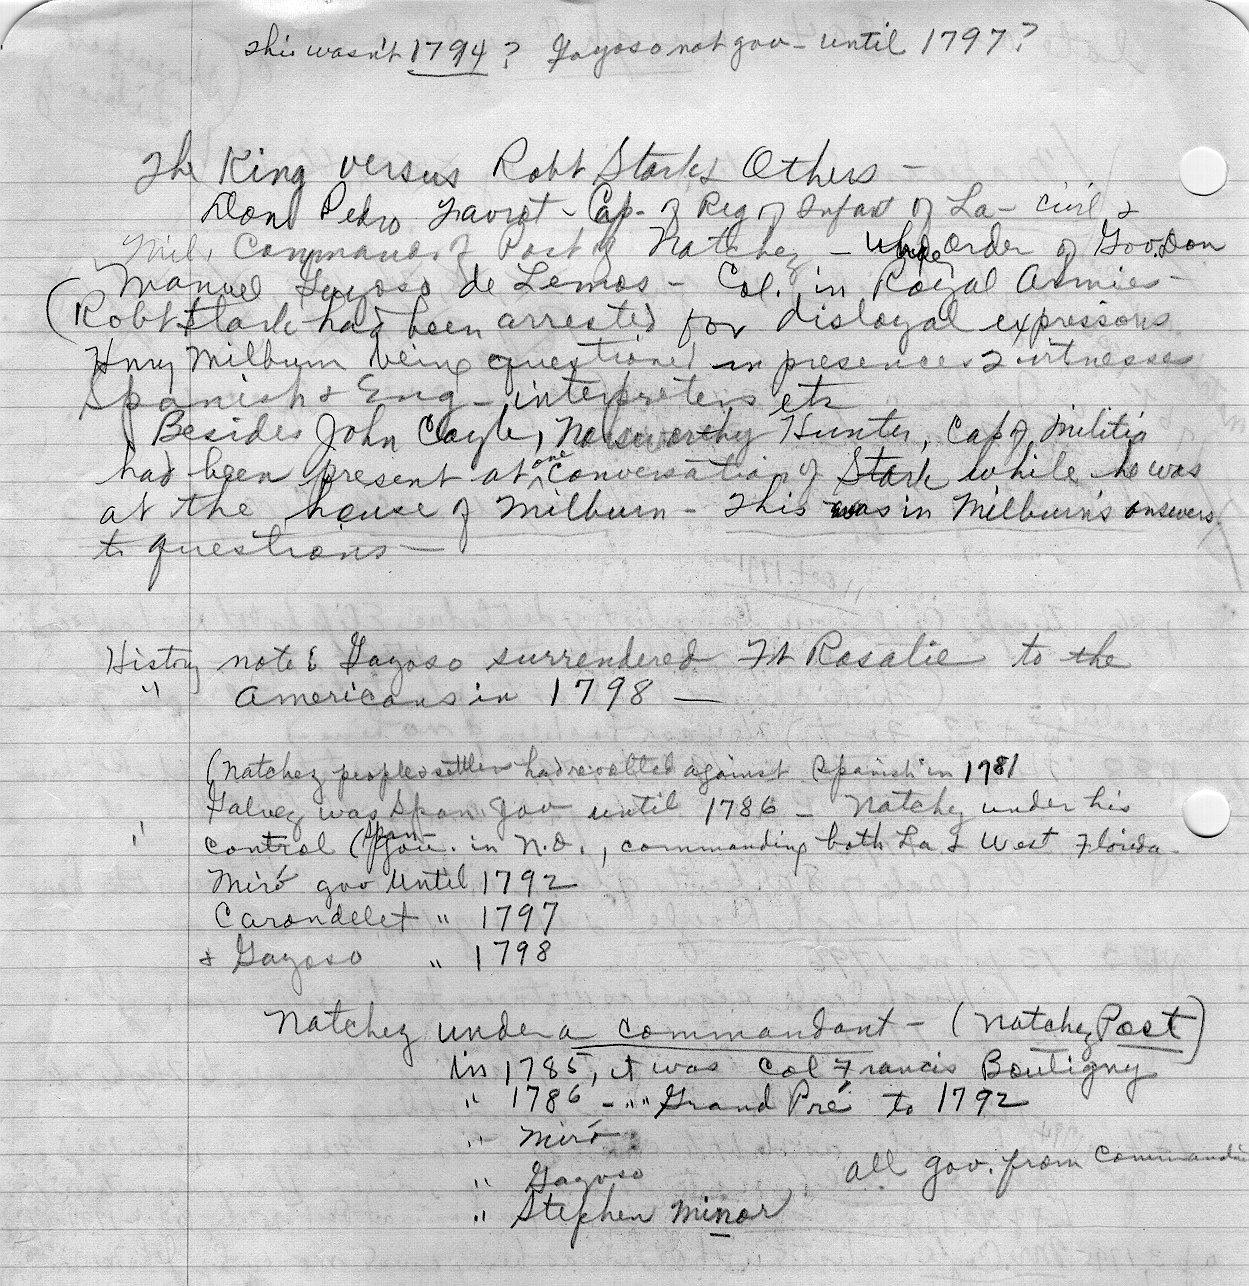 This wasn't 1794? Gayoso not gov - until 1797?
The King versus Robt Stark & Others -
Don Pedro Favrot - Cap. of Reg of Infant of La - civil &
Mil. Command. of Post of Natchez - under order of Gov. Don
Manuel Gayoso de Lemos - Col. in Royal Armies -
(Robt Stark had been arrested for disloyal expressions.
Hnry Milburn being questioned in presence 2 witnesses
Spanish & Eng - interpreters etc
Besides John Coyle, Noseworthy Hunter, Cap of Militia
had been present at one conversation of Stark while he was
at the house of Milburn - This was in Milburn's answers
to questions -
History note: Gayoso surrendered Ft Rosalie to the
" Americans in 1798 -
(Natchez people & settlers had revolted against Spanish in 1781
Galvez was Span Gov until 1786 - Natchez under his
" control (Span gov. in N.O., commanding both La & West Florida -
Miró gov until 1792
Carondelet " 1797
& Gayoso " 1798
Natchez under a commandant - (Natchez Post)
In 1785, it was Col Francis Boutigny
" 1786 - " " Grand Pré to 1792
" Miró
" Gayoso all gov. from
" Stephen Minor